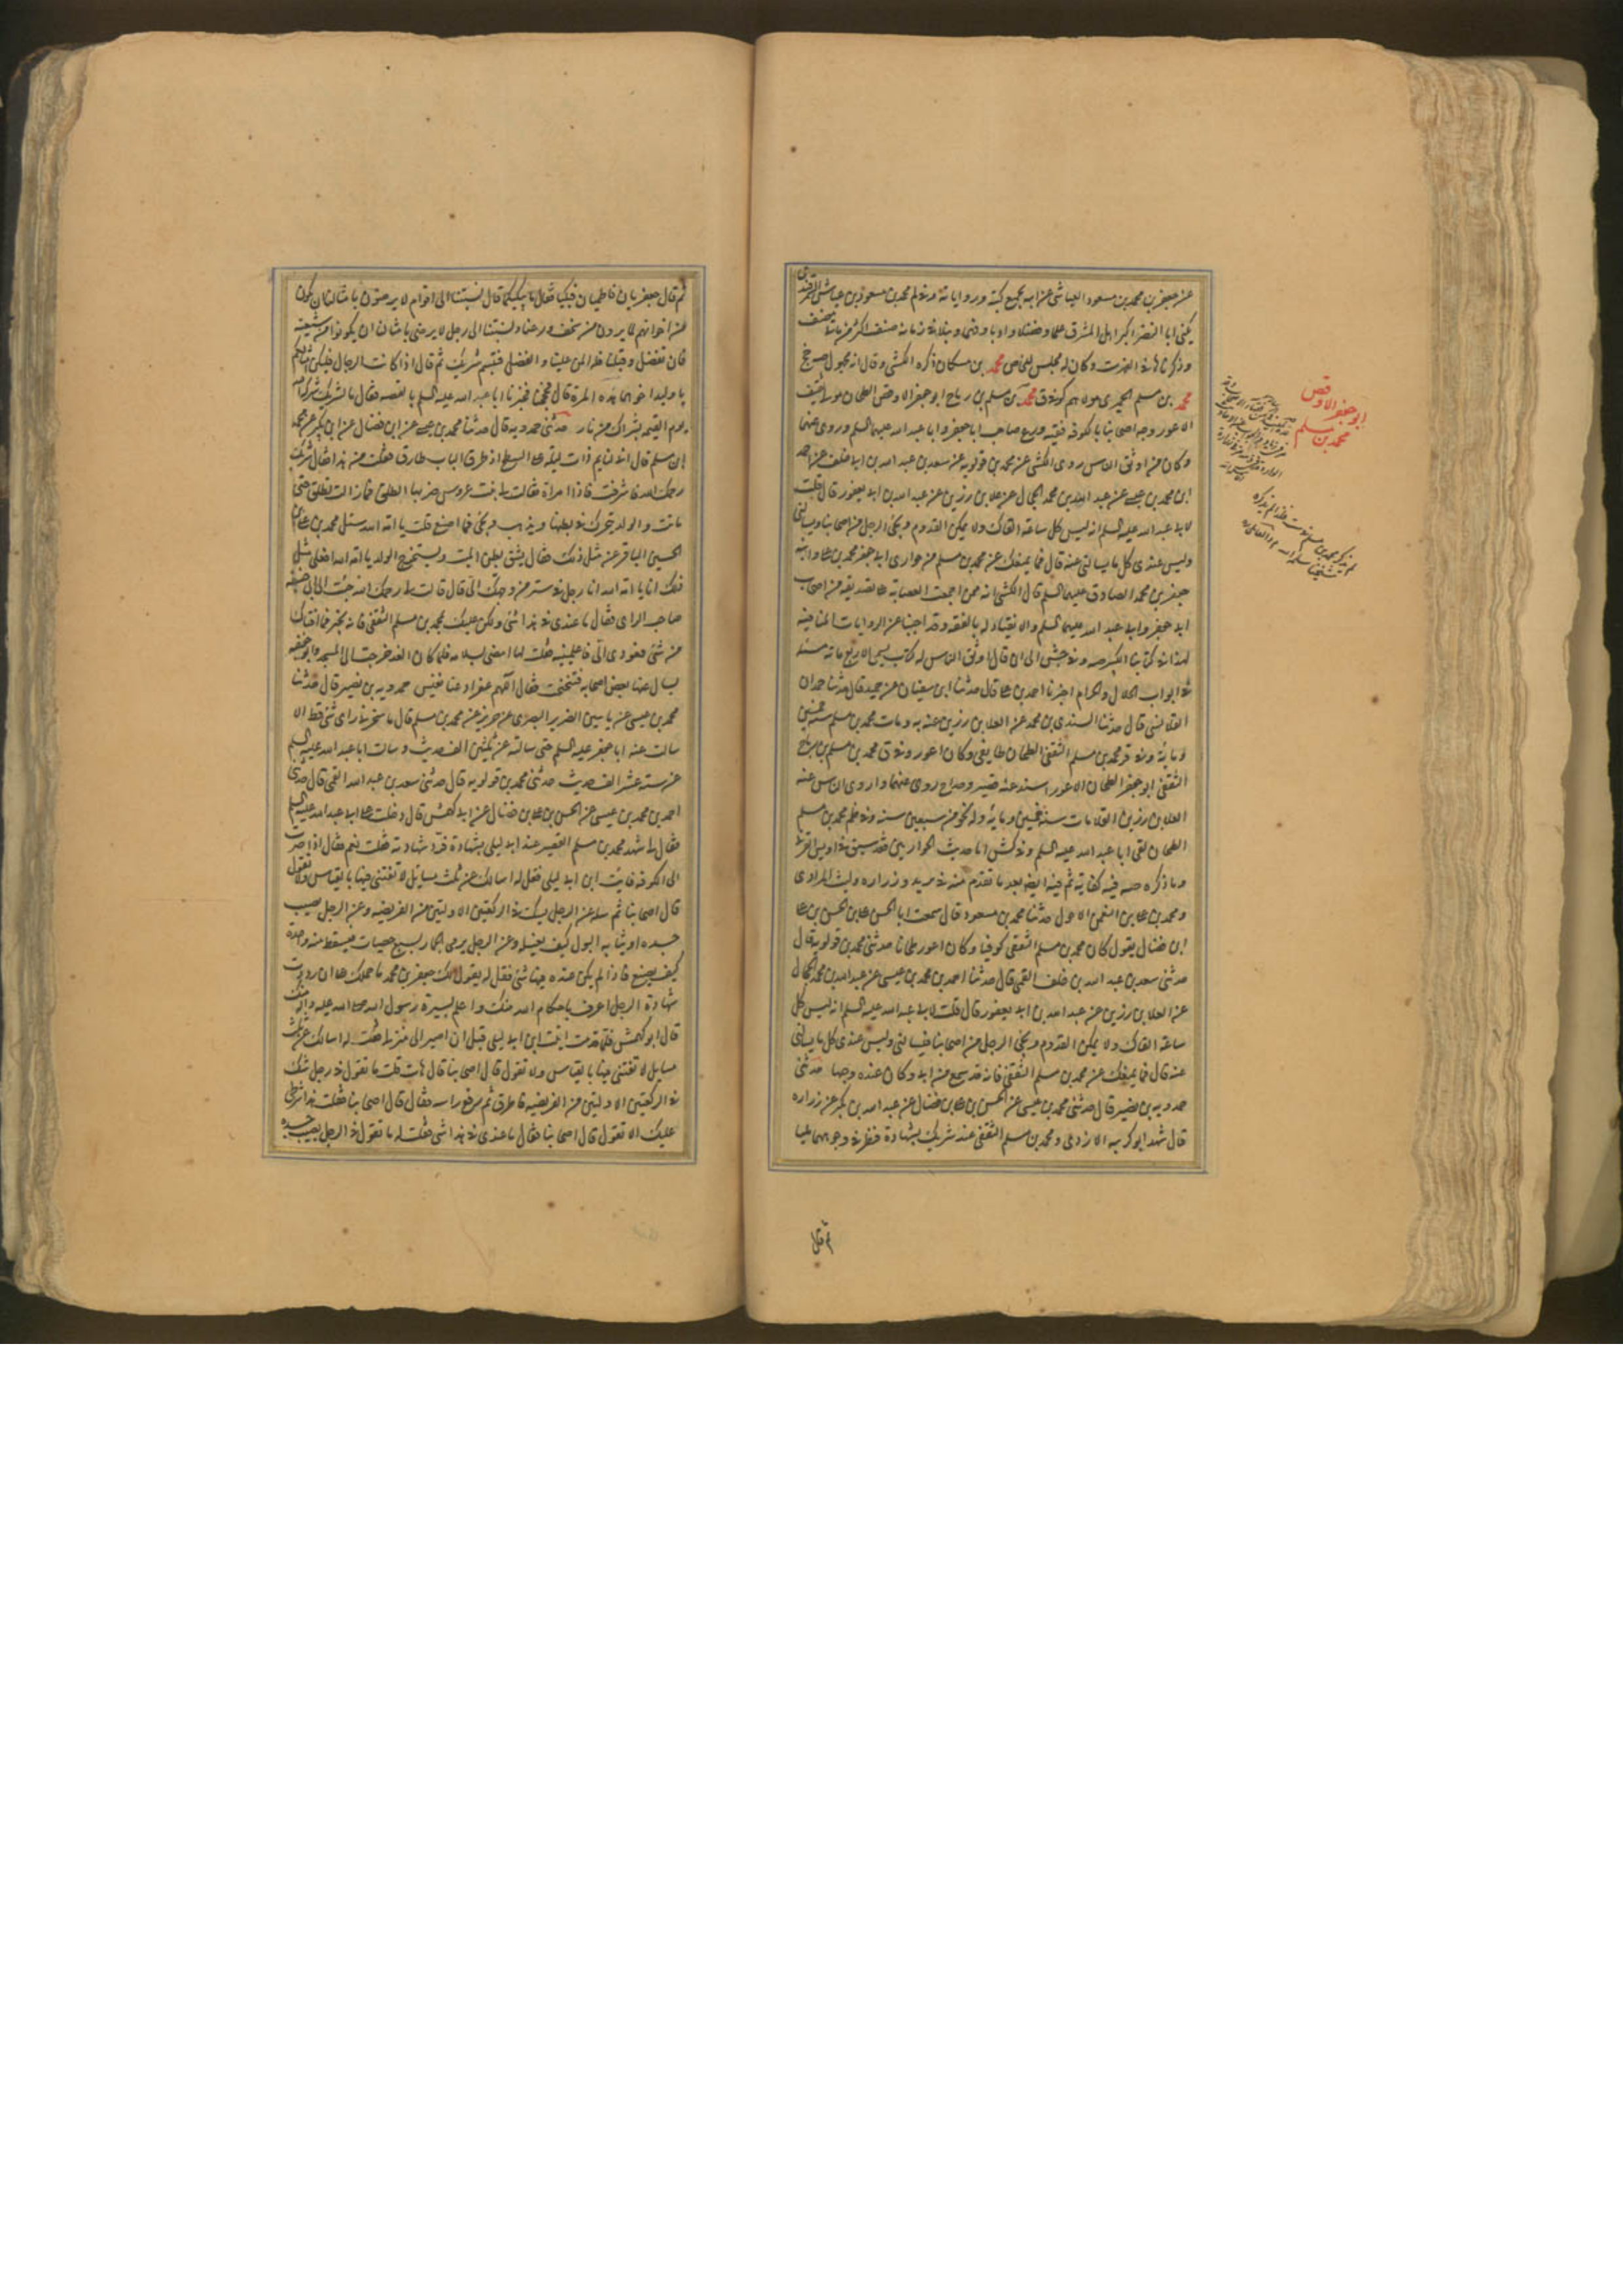 عن جعفر بن محمد بن مسعود العياشي عن ابيه بجميع كتبه ورواياته وفي لم محمد بن مسعود بن عياش السمرقندي
يكنى ابا النضر اكبر اهل المشرق علما وفضلا وادبا وفهما ونبلا في زمانه صنف اكثر من مائتي مصنف
وذكرناها في الفهرست وكان له مجلس للخاص محمد بن مسكان ذكره الكشي وقال انه مجهول
محمد بن مسلم بن رباح ابو جعفر الاوقص الطحان مولى ثقيف
الاعور وجه اصحابنا بالكوفة فقيه ورع صاحب ابا جعفر وابا عبد الله عليهما السلم وروى عنهما
وكان من اوثق الناس روى الكشي عن محمد بن قولويه عن سعد بن عبد الله بن ابي خلف عن احمد
ابن محمد بن عيسى عن عبد الله بن محمد الحجال عن علا بن رزين عن عبد الله بن ابي يعفور قال قلت
لابي عبد الله عليه السلم انه ليس كل ساعة القاك ولا يمكن القدوم ويجئ الرجل من اصحابنا ويسالني
وليس عندي كل ما يسالني عنه قال فما يمنعك عن محمد بن مسلم من حواري ابي جعفر محمد بن علي وابنه
جعفر بن محمد الصادق عليهما السلم قال الكشي انه ممن اجمعت العصابة على تصديقه من اصحاب
ابي جعفر وابي عبد الله عليهما السلم والانقياد له بالفقه وقد اجبنا عن الروايات المنافية
لهذا في كتابنا الكبير وفي جش الى ان قال اوثق الناس له كتاب يسمى الاربع مائة مسئلة
في ابواب الحلال والحرام اخبرنا احمد بن علي قال حدثنا ابن سفيان عن حميد قال حدثنا حمدان
القلانسي قال حدثنا السندي بن محمد عن العلا بن رزين عنه به ومات محمد بن مسلم سنة خمسين
ومائة وفي قر محمد بن مسلم الثقفي الطحان طايفي وكان اعور وفي ق محمد بن مسلم بن رباح
الثقفي ابو جعفر الطحان الاعور اسند عنه قصير روى عنهما واروى الناس عنه
العلا بن رزين القلا مات سنة خمسين ومائة وله نحو من سبعين سنة وفي محمد بن مسلم
الطحان لقي ابا عبد الله عليه السلم وفي كش اما حديث الحواريين فقد سبق في اويس القرني
وما ذكره فيه كفاية ثم فيه ايضا بعد ما تقدم منه في بريد وزراره وليث المرادي
ومحمد بن علي بن النعمان الاحول حدثنا محمد بن مسعود قال سمعت ابا الحسن علي بن الحسن بن علي
ابن فضال يقول كان محمد بن مسلم الثقفي كوفيا وكان اعور طحانا حدثني محمد بن قولويه قال
حدثني سعد بن عبد الله بن خلف القمي قال حدثنا احمد بن محمد بن عيسى عن عبد الله بن محمد الحجال
عن العلا بن رزين عن عبد الله بن ابي يعفور قال قلت لابي عبد الله عليه السلم انه ليس كل
ساعة القاك ولا يمكن القدوم ويجئ الرجل من اصحابنا فيسالني وليس عندي كل ما يسالني
عنه قال فما يمنعك عن محمد بن مسلم الثقفي فانه قد سمع من ابي وكان عنده وجيها حدثني
حمدويه بن نصير قال حدثني محمد بن عيسى عن الحسن بن علي بن فضال عن عبد الله بن بكير عن زراره
قال شهد ابو كريبه الازدي ومحمد بن مسلم الثقفي عند شريك بشهادة فنظر في وجوههما مليا
ابو جعفر الاوقص
محمد بن مسلم
ثم قال
ثم قال جعفريان فاطميان فبكيا فقال ما يبكيكما قال نسبتنا الى اقوام لا يرضون بامثالنا ان نكون
من اخوانهم لما يرون من سخف ورعنا ونسبتنا الى رجل لا يرضى بامثالنا ان يكونوا من شيعته
فان تفضل وقبلنا فله المن علينا والفضل فتبسم شريك ثم قال اذا كانت الرجال فليكن امثالكم
يا وليد اجزهما هذه المرة قال فحججنا فخبرنا ابا عبد الله عليه السلم بالقصه فقال ما لشريك شركه الله
يوم القيمه بشراك من نار حدثني حمدويه قال حدثنا محمد بن عيسى عن ابن فضال عن ابن بكير عن محمد
ابن مسلم قال اني لنايم ذات ليلة على السطح اذ طرق الباب طارق فقلت من هذا فقال شريك
رحمك الله فاشرفت فاذا امراة فقالت لي بنت عروس ضربها الطلق فما زالت تطلق حتى
ماتت والولد يتحرك في بطنها ويذهب ويجئ فما اصنع قلت يا امة الله سئل محمد بن علي بن
الحسين الباقر عن مثل ذلك فقال يشق بطن الميت ويستخرج الولد يا امة الله افعلي مثل
ذلك انا يا امة الله انا رجل في ستر من وجهك الي قال قالت لي رحمك الله جئت الى ابي حنيفه
صاحب الراي فقال ما عندي في هذا شئ ولكن عليك بمحمد بن مسلم الثقفي فانه يخبر فما افتاك
من شئ فعودي الي فاعلمينيه فقلت لها امضي بسلامه فلما كان الغد خرجت الى المسجد وابو حنيفه
يسال عنها بعض اصحابه فتنحنحت فقال اللهم غفرا دعنا نعيش حمدويه بن نصير قال حدثنا
محمد بن عيسى عن ياسين الضرير البصري عن حريز عن محمد بن مسلم قال ما شجر في راي شئ قط الا
سالت عنه ابا جعفر عليه السلم حتى سالته عن ثلثين الف حديث وسالت ابا عبد الله عليه السلم
عن ستة عشر الف حديث حدثني محمد بن قولويه قال حدثني سعد بن عبد الله القمي قال حدثني
احمد بن محمد بن عيسى عن الحسن بن علي بن فضال عن ابي كهمس قال دخلت على ابي عبد الله عليه السلم
فقال لي شهد محمد بن مسلم القصير عند ابن ابي ليلى بشهادة فرد شهادته فقلت نعم فقال اذا صرت
الى الكوفه فايت ابن ابي ليلى فقل له اسالك عن ثلث مسايل لا تفتني فيها بالقياس ولا تقول
قال اصحابنا ثم سله عن الرجل يشك في الركعتين الاوليتين من الفريضه وعن الرجل يصيب
جسده او ثيابه البول كيف يغسله وعن الرجل يرمي الجمار بسبع حصيات فيسقط منه واحدة
كيف يصنع فاذا لم يكن عنده فيها شئ فقل له يقول لك جعفر بن محمد ما حملك على ان رددت
شهادة الرجل اعرف باحكام الله منك واعلم بسيرة رسول الله صلى الله عليه واله منك
قال ابو كهمش فلما قدمت اتيت ابن ابي ليلى قبل ان اصير الى منزلي فقلت له اسالك عن ثلث
مسايل لا تفتني فيها بالقياس ولا تقول قال اصحابنا قال هات قلت ما تقول في رجل شك
في الركعتين الاوليتين من الفريضه فاطرق ثم رفع راسه فقال قال اصحابنا فقلت هذا شرطي
عليك الا تقول قال اصحابنا فقال ما عندي في هذا شئ فقلت له ما تقول في الرجل يصيب جسده